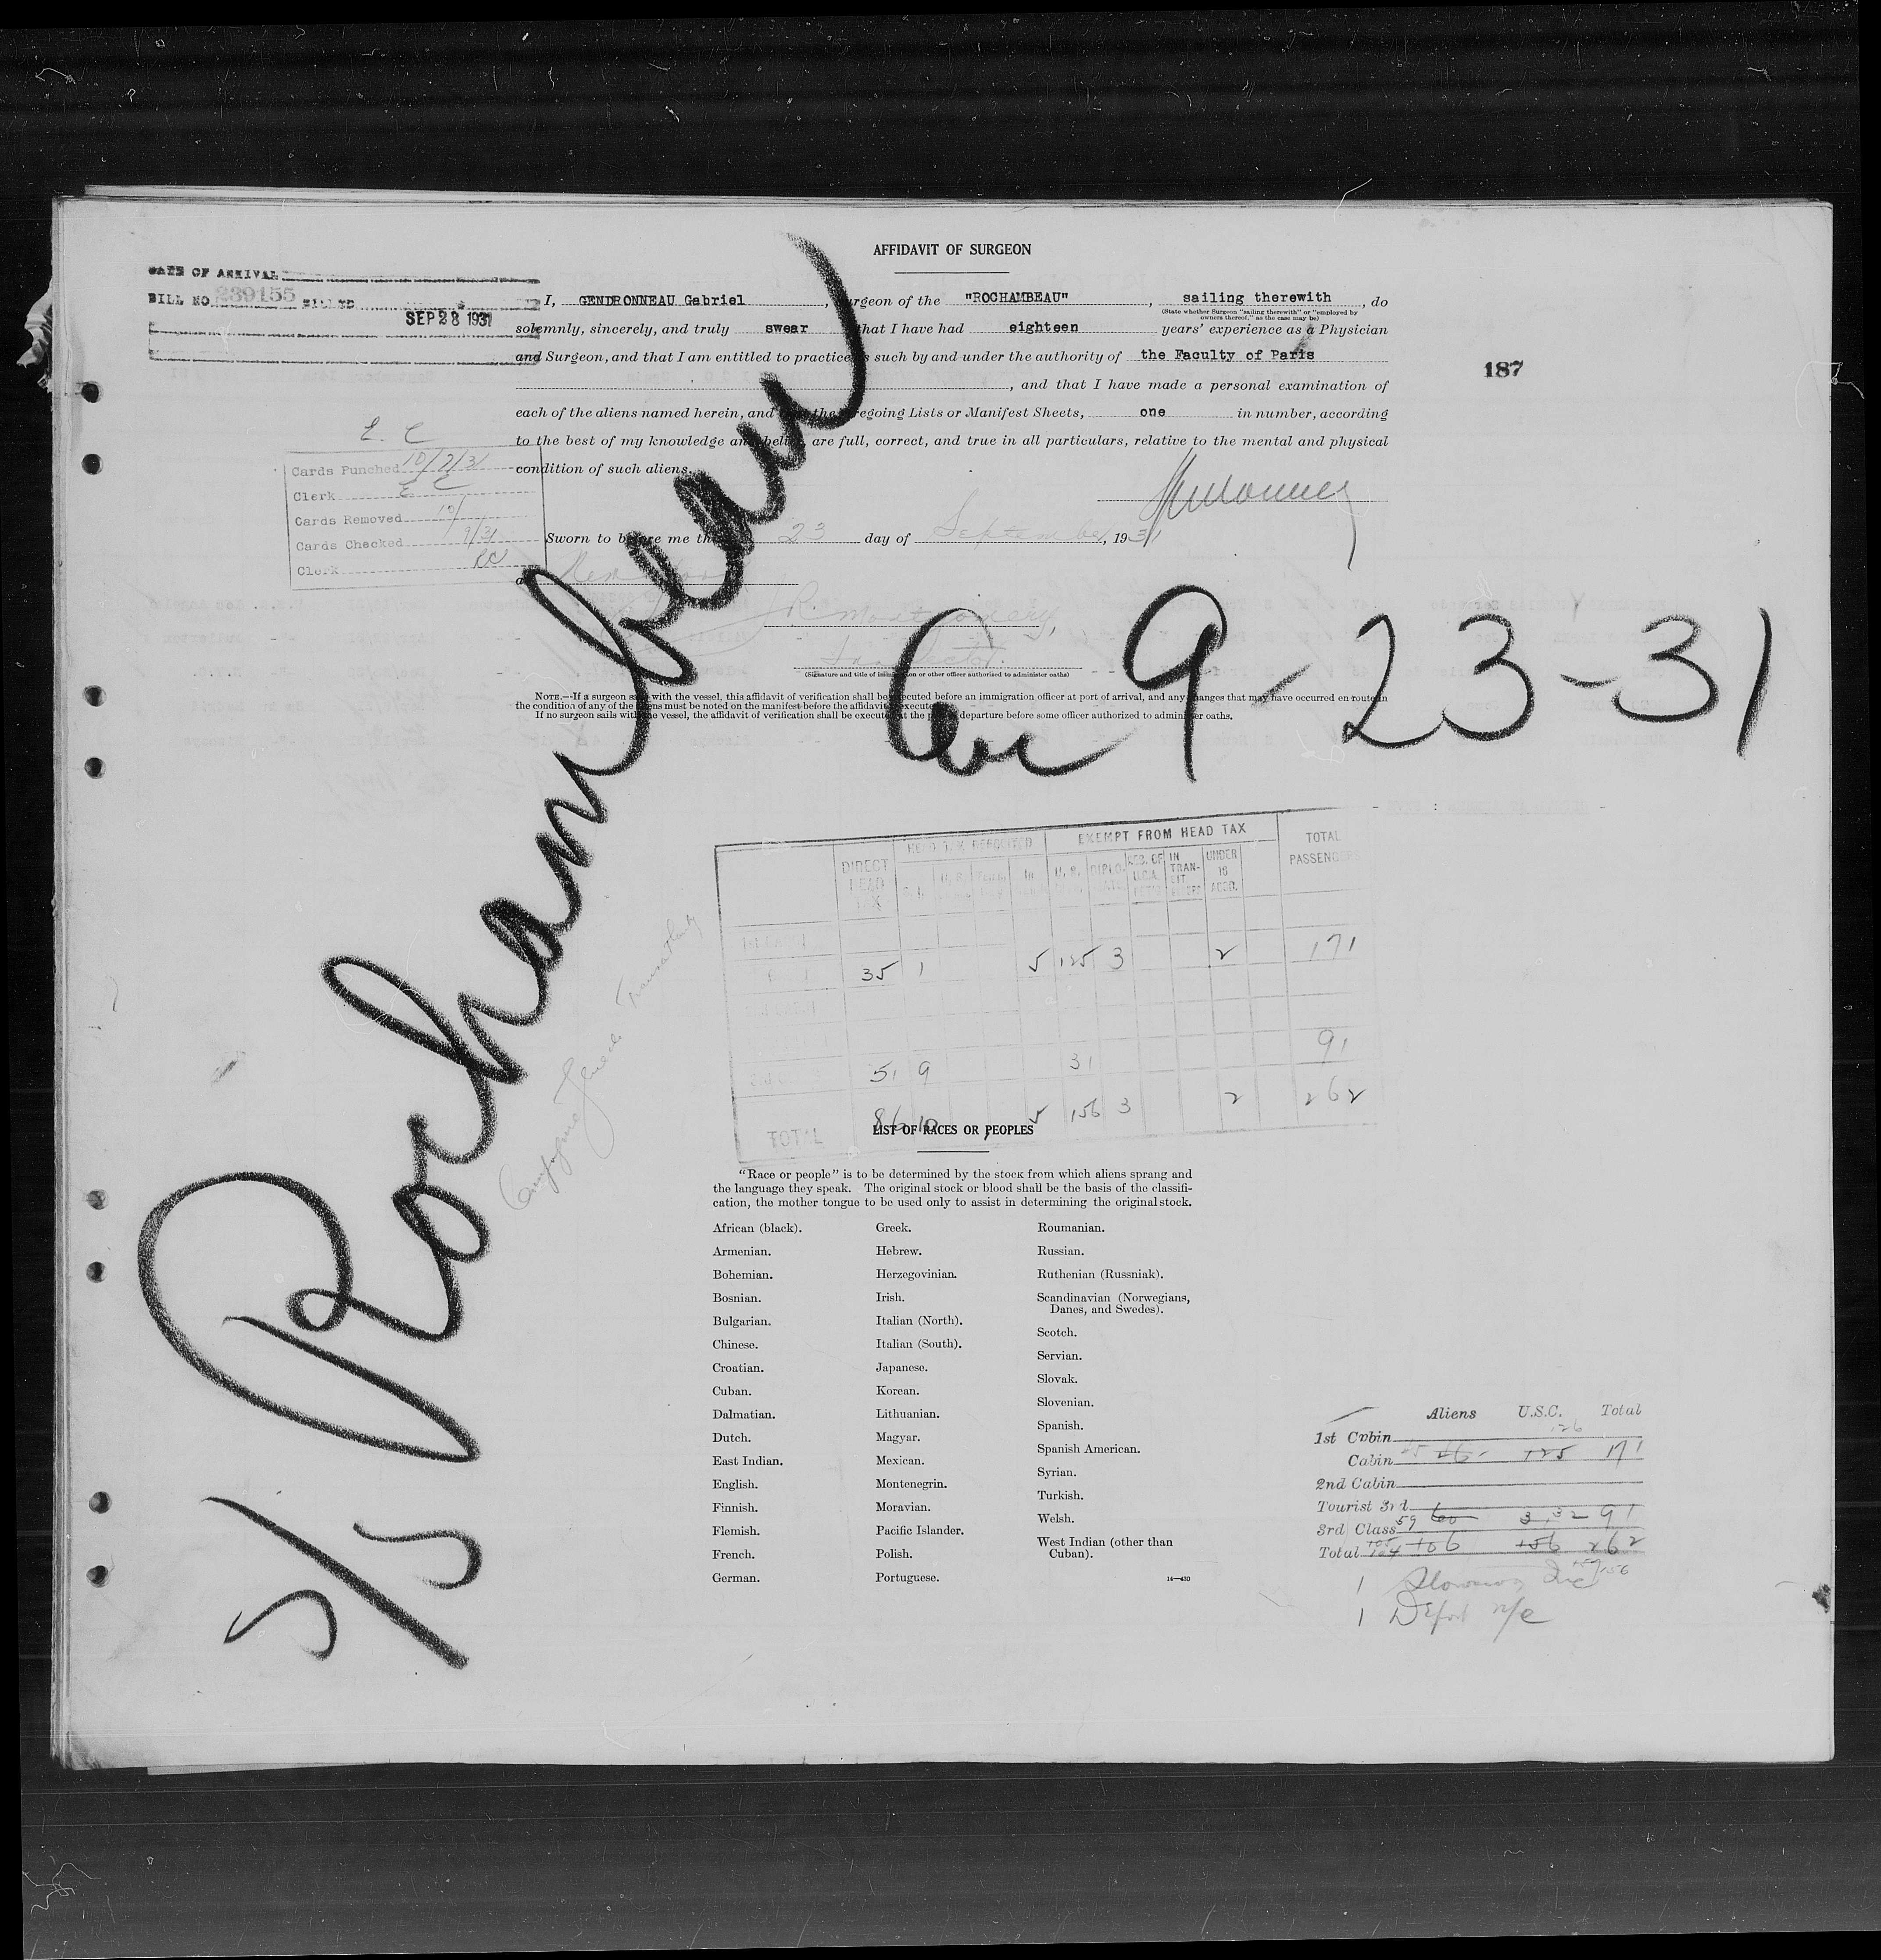 AFFIDAVIT OF SURGEON
DATE OF ARRIVAL
BILL NO. 239155 BILLED
SEP 28 1931
I, GENDRONNEAU Gabriel, Surgeon of the "ROCHAMBEAU", sailing therewith, do
(State whether Surgeon "sailing therewith" or "employed by owners thereof," as the case may be)
solemnly, sincerely, and truly swear that I have had eighteen years' experience as a Physician
and Surgeon, and that I am entitled to practice as such by and under the authority of the Faculty of Paris
, and that I have made a personal examination of
each of the aliens named herein, and that the foregoing Lists or Manifest Sheets, one in number, according
to the best of my knowledge and belief, are full, correct, and true in all particulars, relative to the mental and physical
condition of such aliens.
187
E. C
Cards Punched 10/7/31
Clerk E C
Cards Removed 10/
Cards Checked 9/31
Clerk
Sworn to before me this 23 day of September, 1931
at New York
R. Montgomery,
Inspector.
(Signature and title of immigration or other officer authorized to administer oaths)
NOTE.—If a surgeon sails with the vessel, this affidavit of verification shall be executed before an immigration officer at port of arrival, and any changes that may have occurred en route in
the condition of any of the aliens must be noted on the manifest before the affidavit is executed.
If no surgeon sails with the vessel, the affidavit of verification shall be executed at the port of departure before some officer authorized to administer oaths.
S/S Rochambeau
Arr 9-23-31
DIRECT HEAD TAX
HEAD TAX DEPOSITED
EXEMPT FROM HEAD TAX
TOTAL PASSENGERS
U. S. DIPLO. IN TRANSIT UNDER 16 ACCD.
35 1 5 125 3 2 171
51 9 31 91
TOTAL 86 10 5 156 3 2 262
Compagnie Generale Transatlantique
LIST OF RACES OR PEOPLES
"Race or people" is to be determined by the stock from which aliens sprang and
the language they speak. The original stock or blood shall be the basis of the classifi-
cation, the mother tongue to be used only to assist in determining the original stock.
African (black).
Armenian.
Bohemian.
Bosnian.
Bulgarian.
Chinese.
Croatian.
Cuban.
Dalmatian.
Dutch.
East Indian.
English.
Finnish.
Flemish.
French.
German.
Greek.
Hebrew.
Herzegovinian.
Irish.
Italian (North).
Italian (South).
Japanese.
Korean.
Lithuanian.
Magyar.
Mexican.
Montenegrin.
Moravian.
Pacific Islander.
Polish.
Portuguese.
Roumanian.
Russian.
Ruthenian (Russniak).
Scandinavian (Norwegians,
Danes, and Swedes).
Scotch.
Servian.
Slovak.
Slovenian.
Spanish.
Spanish American.
Syrian.
Turkish.
Welsh.
West Indian (other than
Cuban).
14—430
Aliens U.S.C. Total
1st Cabin 126
Cabin 45 46 125 171
2nd Cabin
Tourist 3rd
3rd Class 59 60 31 32 91
Total 105 104 106 156 262
1
1 Deport